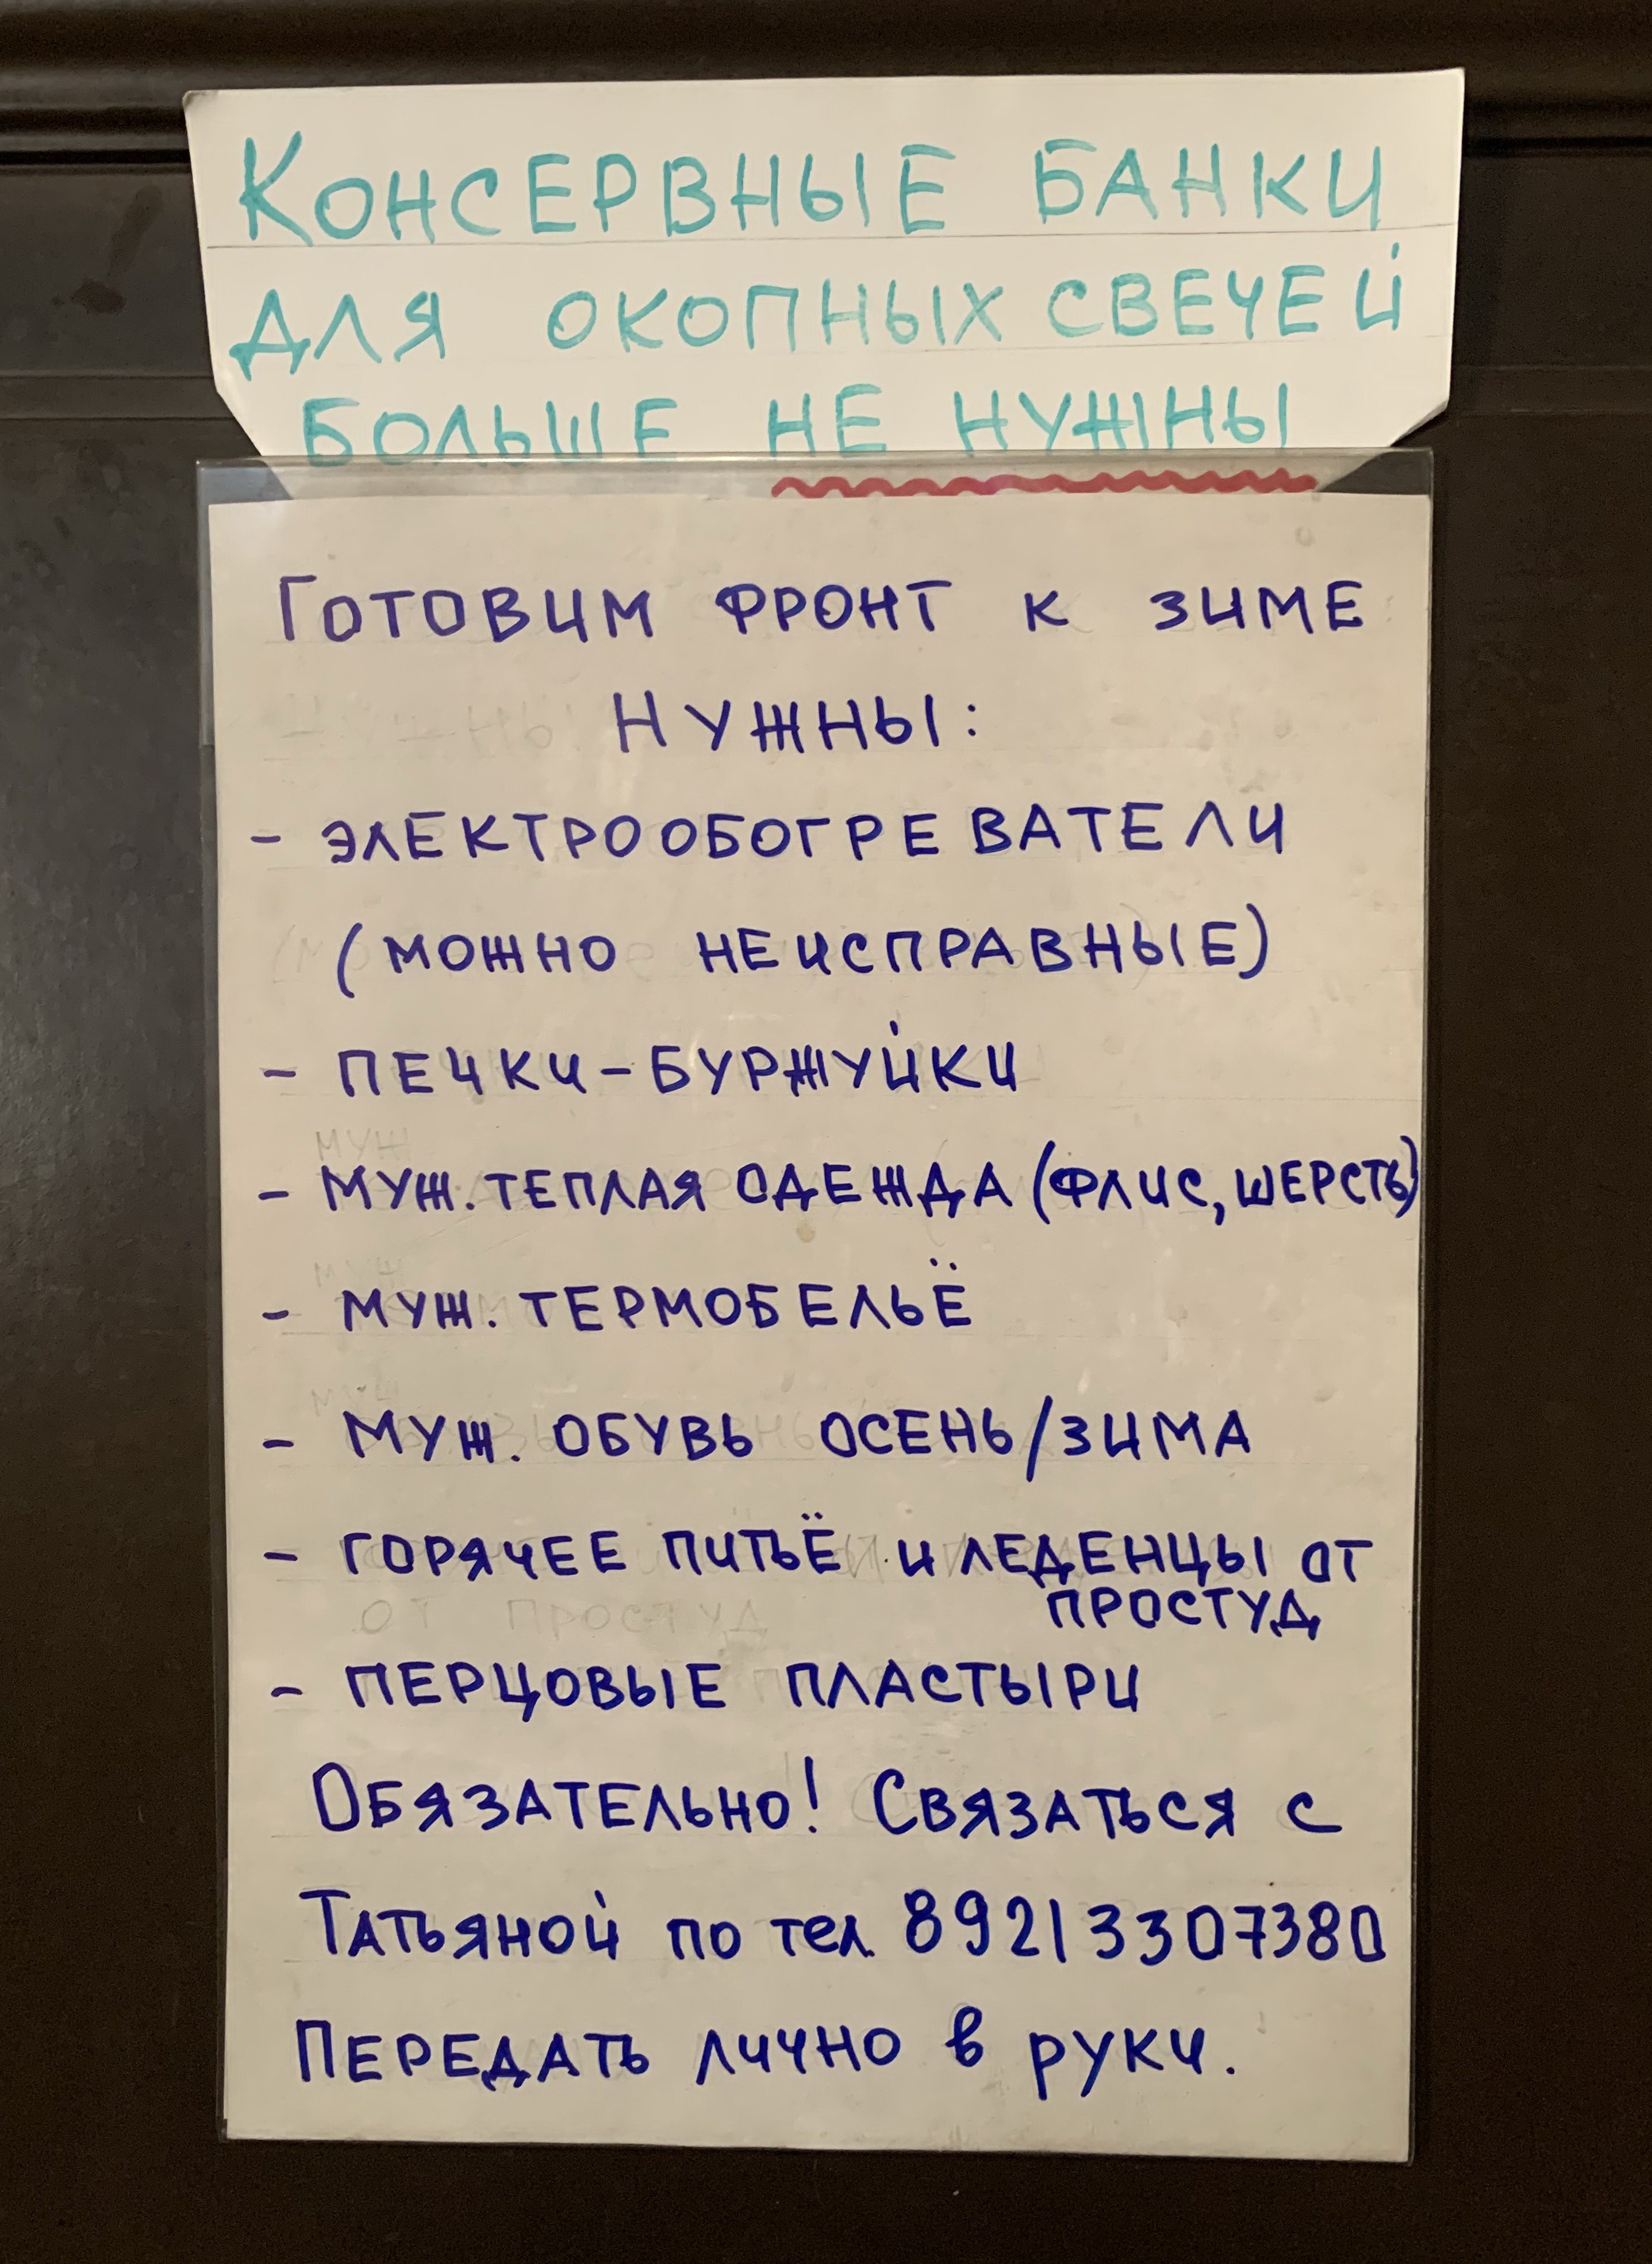 Консервные банки
для окопных свечей
больше не нужны
Готовим фронт к зиме
Нужны:
- электрообогреватели
(можно неисправные)
- печки-буржуйки
- муж. теплая одежда (флис, шерсть)
- муж. термобельё
- муж. обувь осень/зима
- горячее питьё и леденцы от
простуд
- перцовые пластыри
Обязательно! Связаться с
Татьяной по тел. 89213307380
Передать лично в руки.